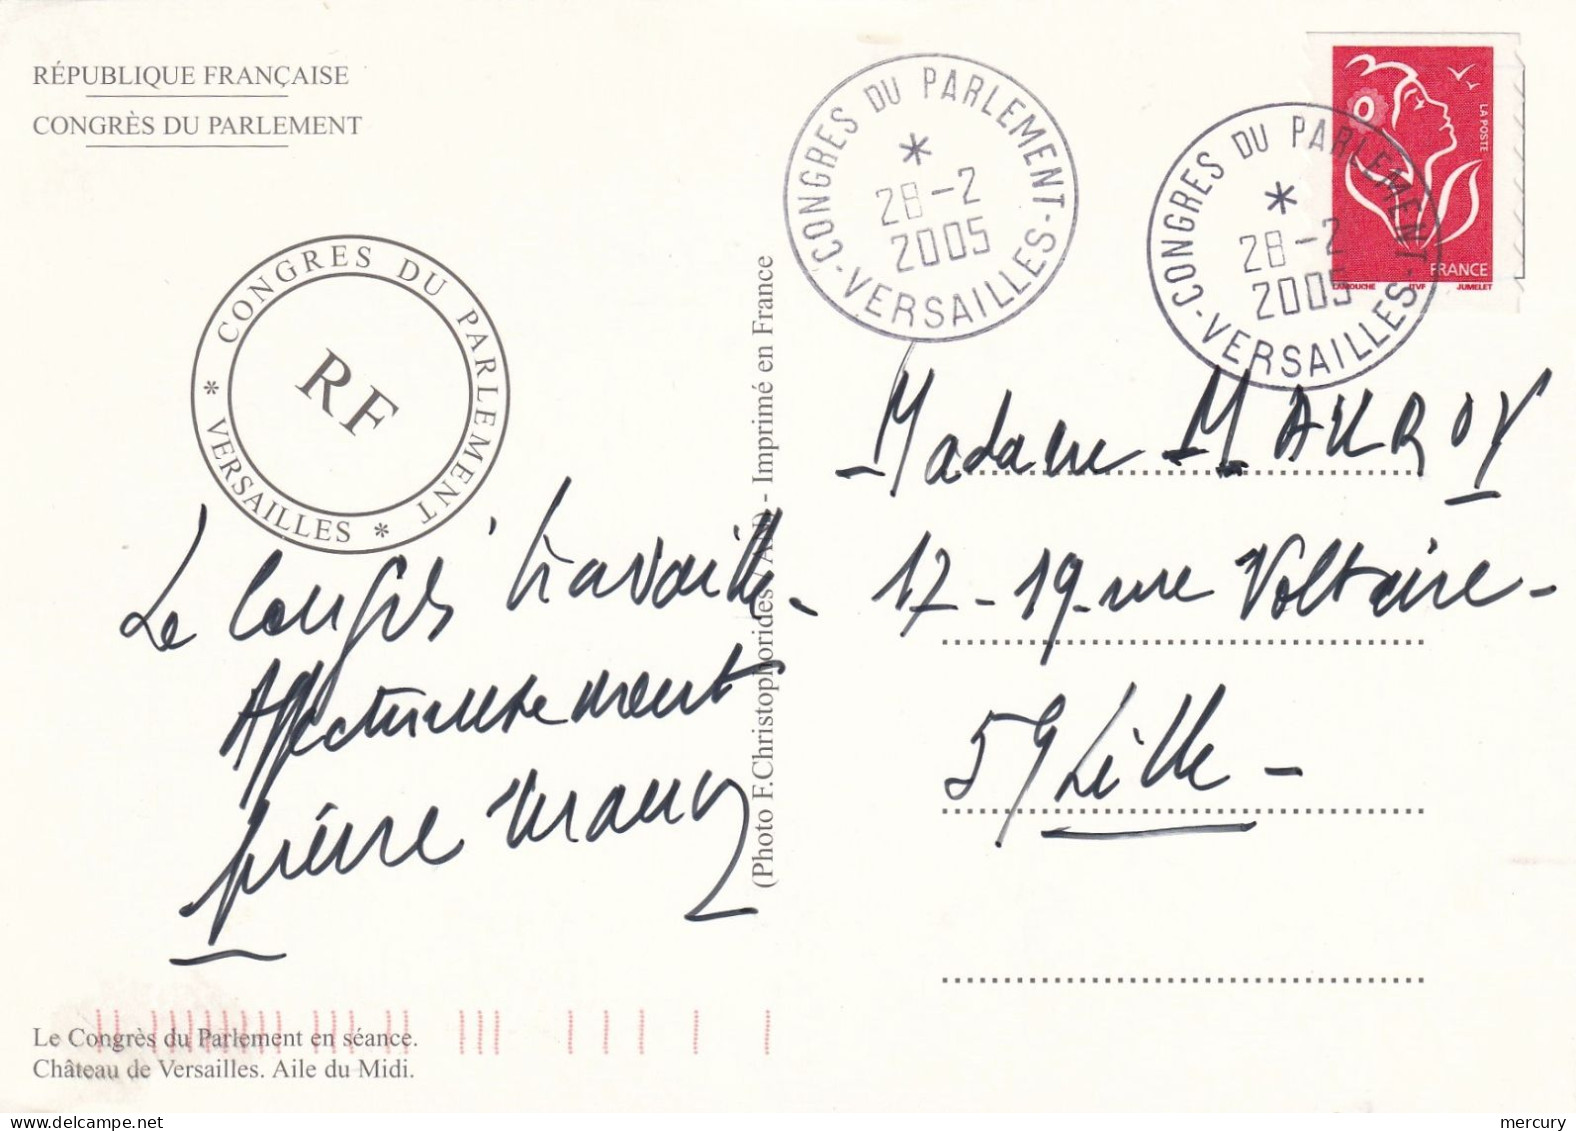 RÉPUBLIQUE FRANÇAISE
CONGRÈS DU PARLEMENT
CONGRES DU PARLEMENT
* VERSAILLES *
RF
CONGRES DU PARLEMENT
*
28-2
2005
-VERSAILLES-
CONGRES DU PARLEMENT
*
28-2
2005
-VERSAILLES-
LA POSTE
FRANCE
LAMOUCHE ITVF JUMELET
Le Congrès travaille -
Affectueusement
pierre mauroy
(Photo F.Christophorides - Imprimé en France
Madame MAUROY
17-19 rue Voltaire -
59 Lille -
Le Congrès du Parlement en séance.
Château de Versailles. Aile du Midi.
mercury